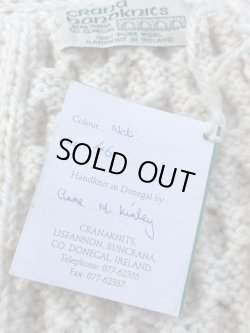 crana
handknits
BUNCRANA
CO. DONEGAL
100% PURE WOOL
HANDKNIT IN IRELAND
Colour: Nat
SOLD OUT
Handknit in Donegal by:-
Anne M. Kinley
CRANAKNITS,
LISFANNON, BUNCRANA,
CO. DONEGAL, IRELAND
Telephone: 077-62355
Fax: 077-62357